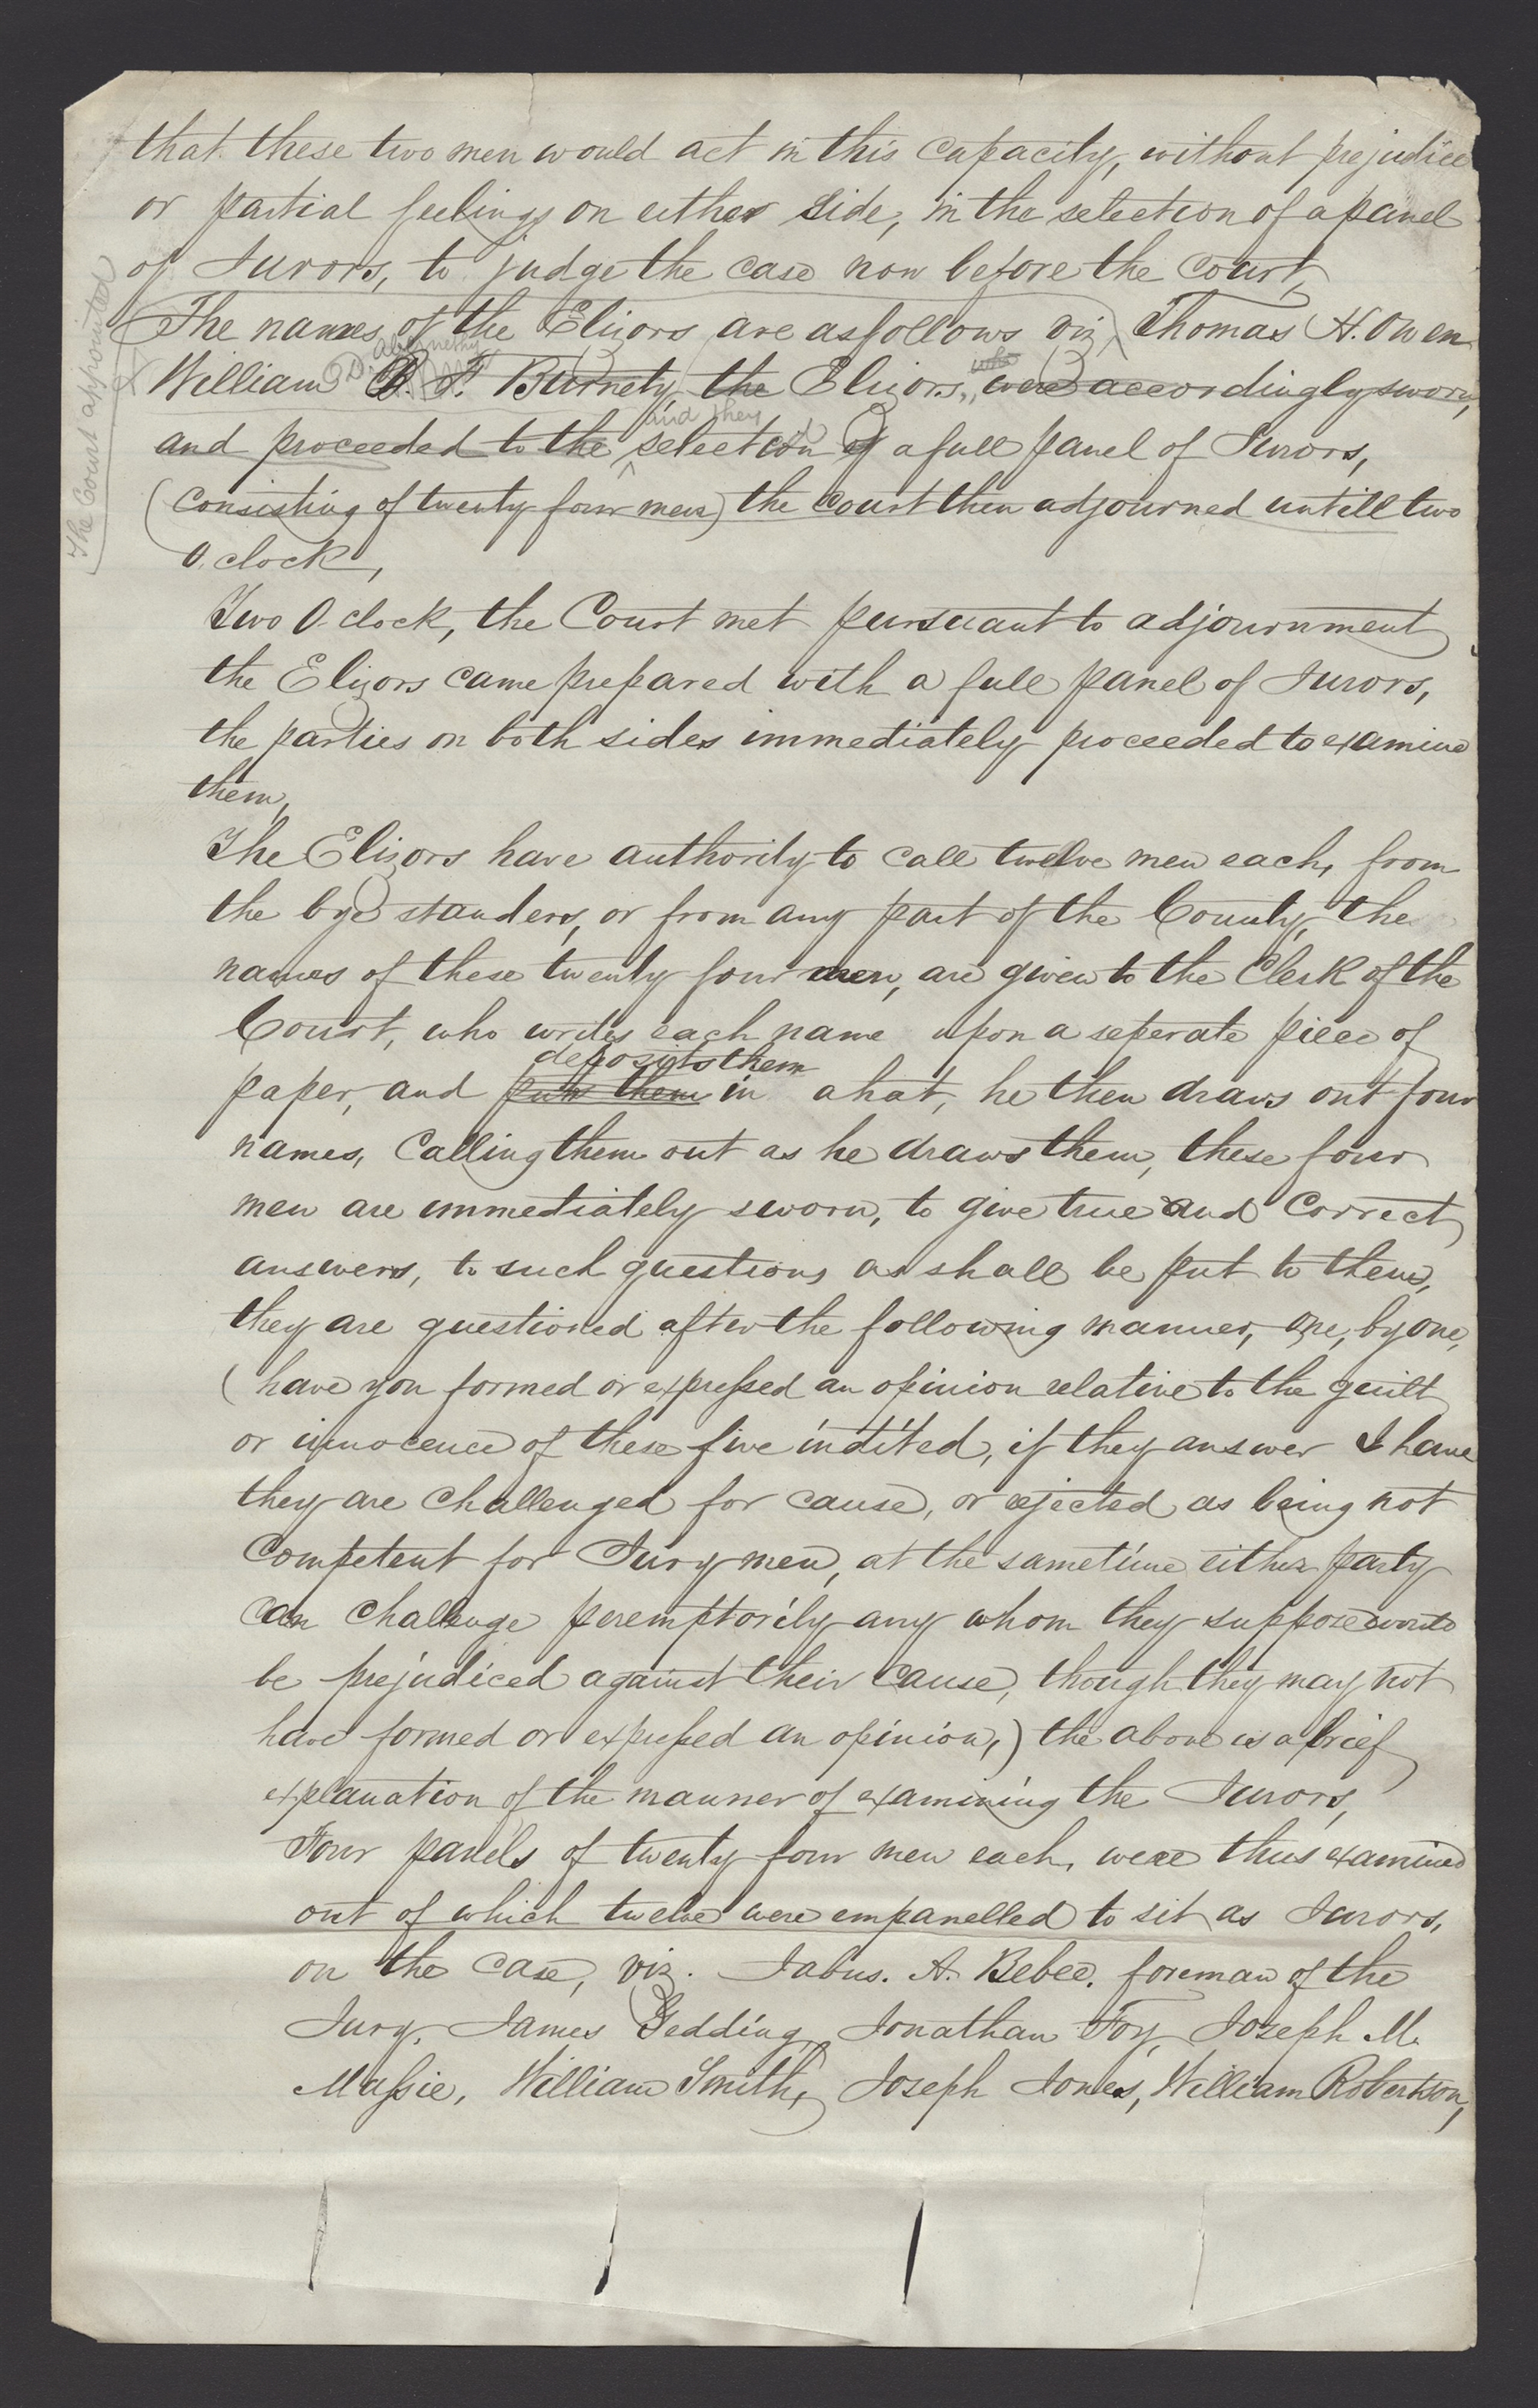 that these two men would act in this capacity, without prejudice
or partial feelings on either side, in the selection of a panel
of Jurors, to judge the case now before the court,
The Court appointed
The names of the Elizors are as follows viz, Thomas H. Owen
D. Abernethy
William D. F. Burnety, the Elizors, who were accordingly sworn,
and they
and proceeded to the selection of a full panel of Jurors,
(consisting of twenty four men) the court then adjourned untill two
O. clock,
Two O. clock, the Court met pursuant to adjournment
the Elizors came prepared with a full panel of Jurors,
the parties on both sides immediately proceeded to examine
them,
The Elizors have authority to call twelve men each, from
the bye standers, or from any part of the County, the
names of these twenty four men, are given to the Clerk of the
Court, who writes each name upon a seperate piece of
deposits them
paper, and puts them in a hat, he then draws out four
names, Calling them out as he draws them, these four
men are immediately sworn, to give true and Correct
answers, to such questions as shall be put to them,
they are questioned after the following manner, one, by one,
(have you formed or expressed an opinion relative to the guilt
or innocence of these five indited, if they answer I have
they are Challenged for cause, or ejected as being not
Competent for Jury men, at the sametime either party
can Challenge peremptorily any whom they suppose would
be prejudiced against their Cause, though they may not
have formed or expressed an opinion,) the above is a brief
explanation of the manner of examining the Jurors,
Four panels of twenty four men each, were thus examined
out of which twelve were empanelled to sit as Jurors,
on the case, viz. Jabus. A. Bebee. foreman of the
Jury, James Gedding, Jonathan Foy, Joseph M.
Massie, William Smith, Joseph Jones, William Robertson,